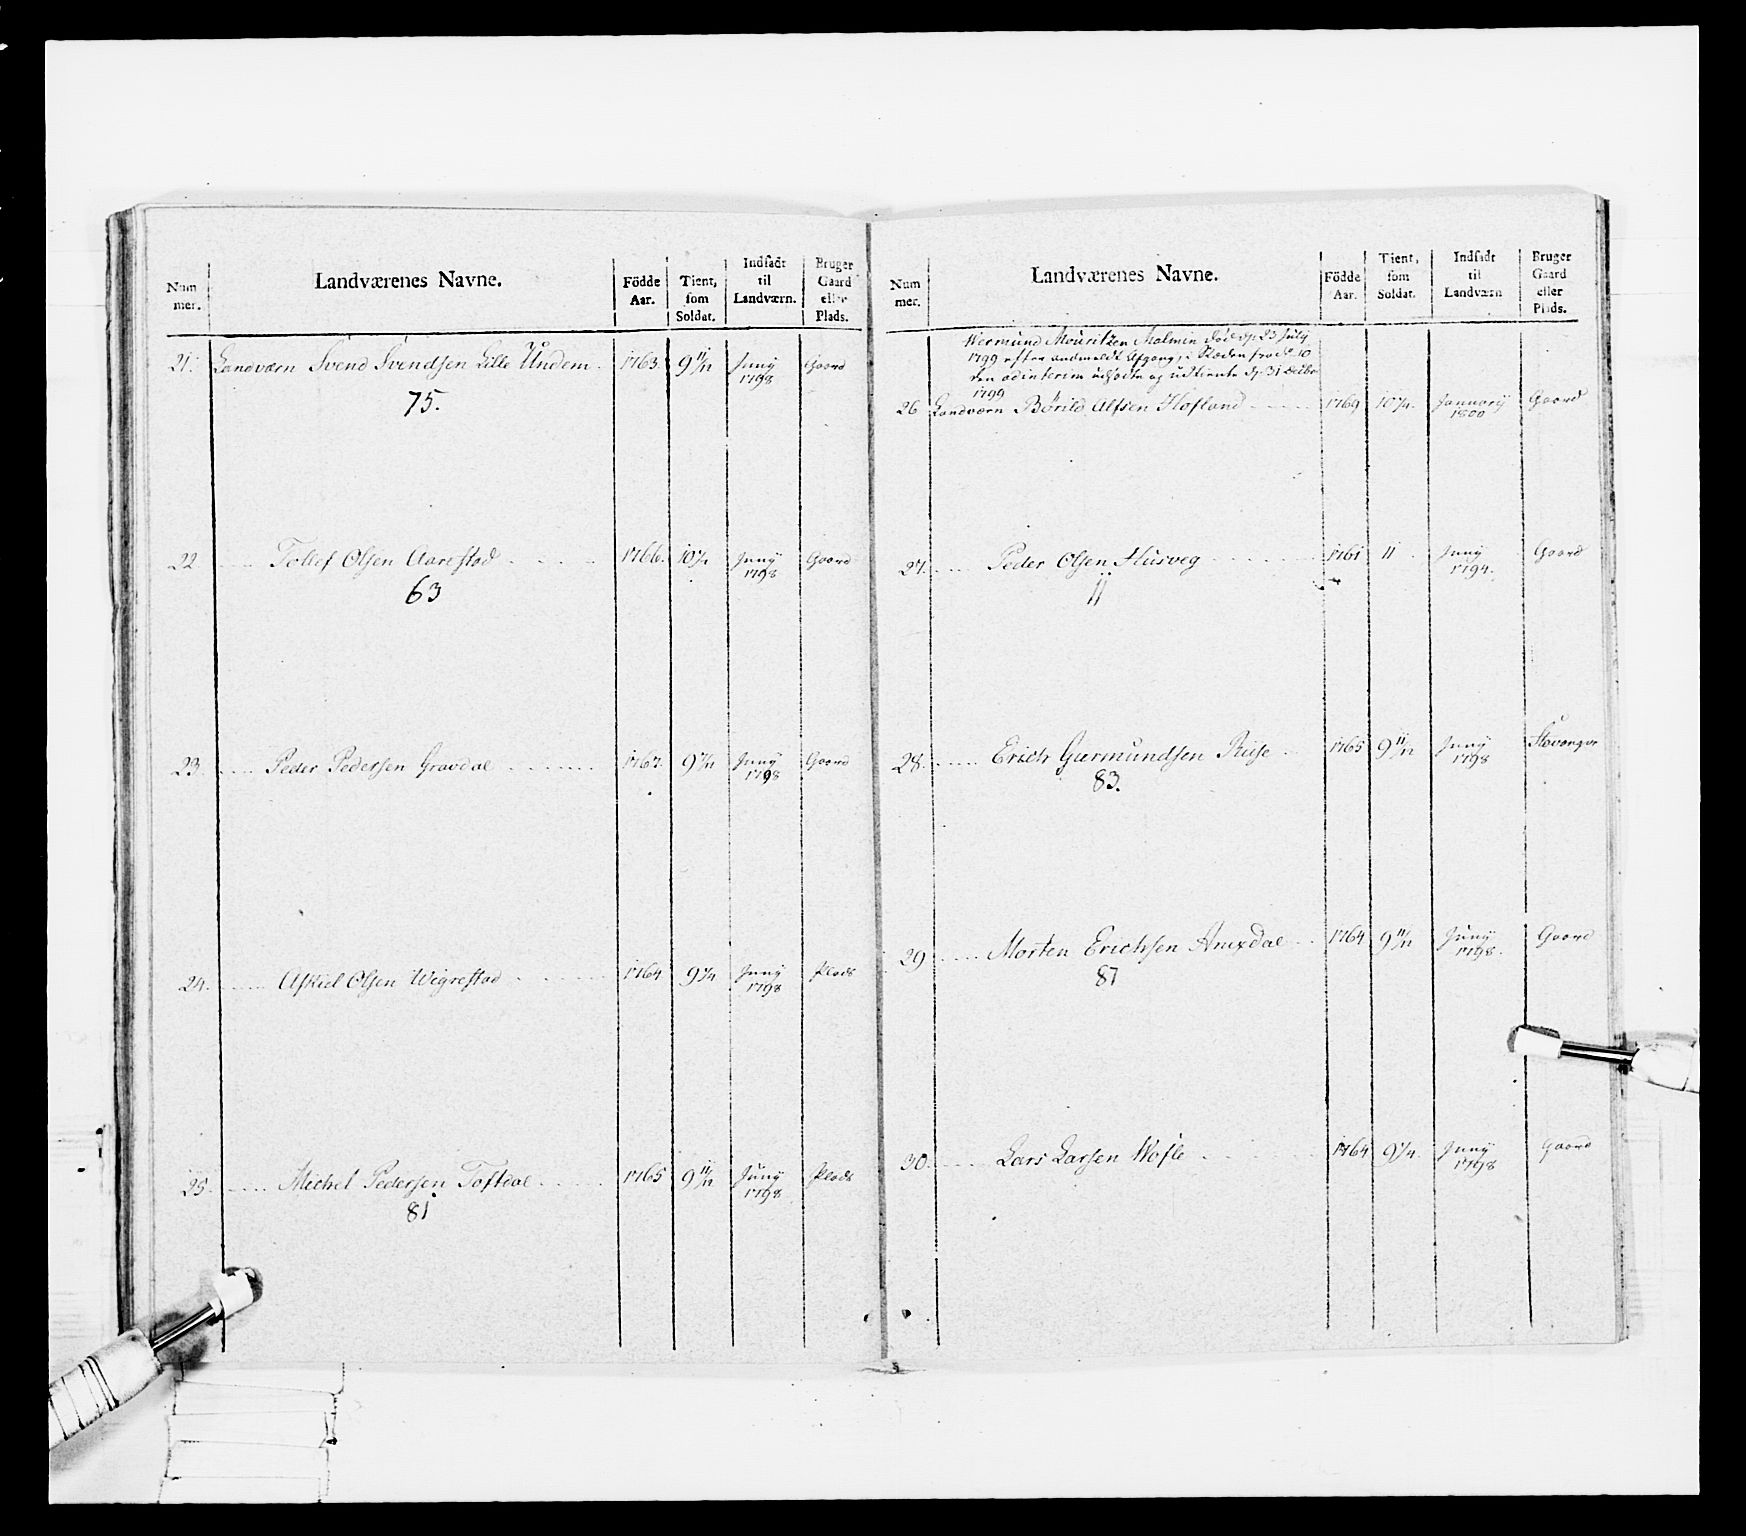 Num mer. Landværenes Navne. Födde Aar. Tient, som Soldat. Indfadt til Landværn. Bruger Gaard eller Plads.
21. Landværn Svend Svendsen Lille Undem. 1763. 9 11/12 Juny 1798 Gaard
75.
22 Tollef Olsen Aarestad 1766. 10 Juny 1798 Gaard
63
23 Peder Pedersen Gravdal 1767. 9 Juny 1798 Gaard
24. Askiel Olsen Wigrestad 1764 9 1/4 Juny 1798 Plads
25. Michel Pedersen Toftdal 1765 9 11/12 Juny 1798 Plads
81
Num mer. Landværenes Navne. Födde Aar. Tient, som Soldat. Indfadt til Landværn Bruger Gaard eller Plads.
Wermund Mouritzen Malmin döde d. 23 July
1799 efter anmeldt Afgang, i Stæden
den ad interim udsadte og udtiente d. 31 Decbr
1799
26 Landværn Bórild Alfsen Hofland 1769 10 1/4. January 1800 Gaard
27. Peder Olsen Husveg 1761 11 Juny 1794. Gaard
11
28. Erich Guermundsen Riise 1765 9 11/12 Juny 1798 Stavanger
83.
29 Morten Erichsen Anixdal 1764 9 11/12 Juny 1798. Gaard
87
30. Lars Larsen Wofle 1764 9 1/4. Juny 1798 Gaard